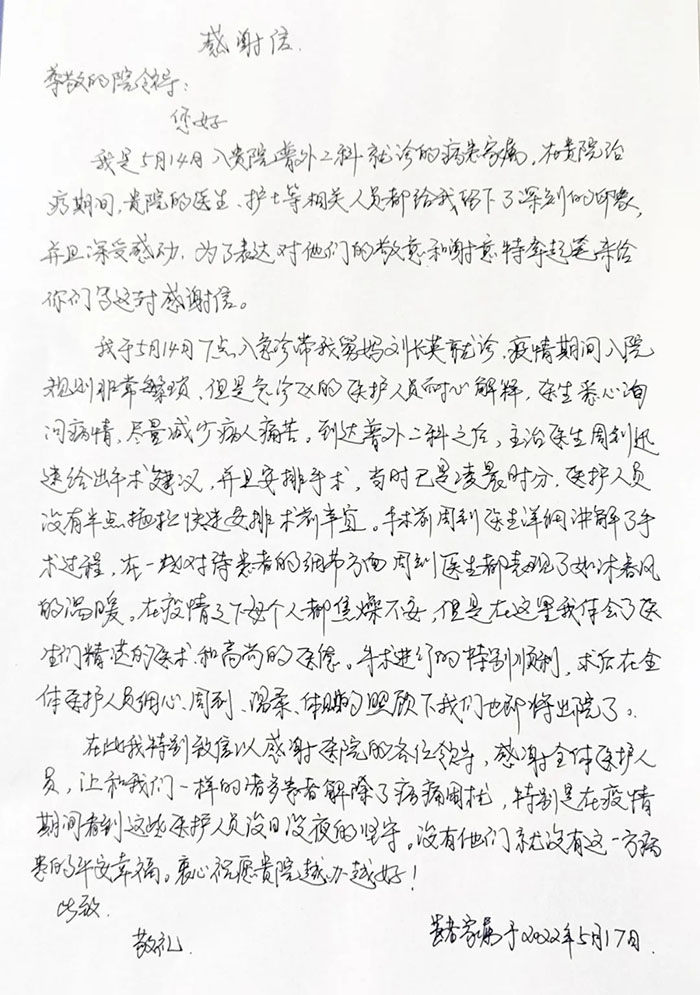 感谢信.
尊敬的院领导:
您好
我是5月14日入贵院普外二科就诊的病患家属,在贵院治
疗期间,贵院的医生、护士等相关人员都给我留下了深刻的印象,
并且深受感动,为了表达对他们的敬意和谢意特拿起笔亲给
你们写这封感谢信。
我于5月14日7点入急诊带我舅妈刘长英就诊,疫情期间入院
规则非常繁琐,但是急诊的医护人员耐心解释,医生悉心询
问病情,尽量减少病人痛苦。到达普外二科之后,主治医生周利迅
速给出手术建议,并且安排手术,当时已是凌晨时分,医护人员
没有半点拖拉快速安排术前事宜。手术前周利医生详细讲解了手
术过程,在一切对待患者的细节方面周利医生都表现了如沐春风
的温暖。在疫情之下每个人都焦燥不安,但是在这里我体会了医
生们精湛的医术和高尚的医德。手术进行的特别顺利,术后在全
体医护人员细心、周到、温柔、体贴的照顾下我们也即将出院了。
在此我特别致信以感谢医院的各位领导,感谢全体医护人
员,让和我们一样的诸多患者解除了疼痛困扰,特别是在疫情
期间看到这些医护人员没日没夜的坚守。没有他们就没有这一方病
患的平安幸福。衷心祝愿贵院越办越好!
此致
敬礼.
患者家属于2022年5月17日.